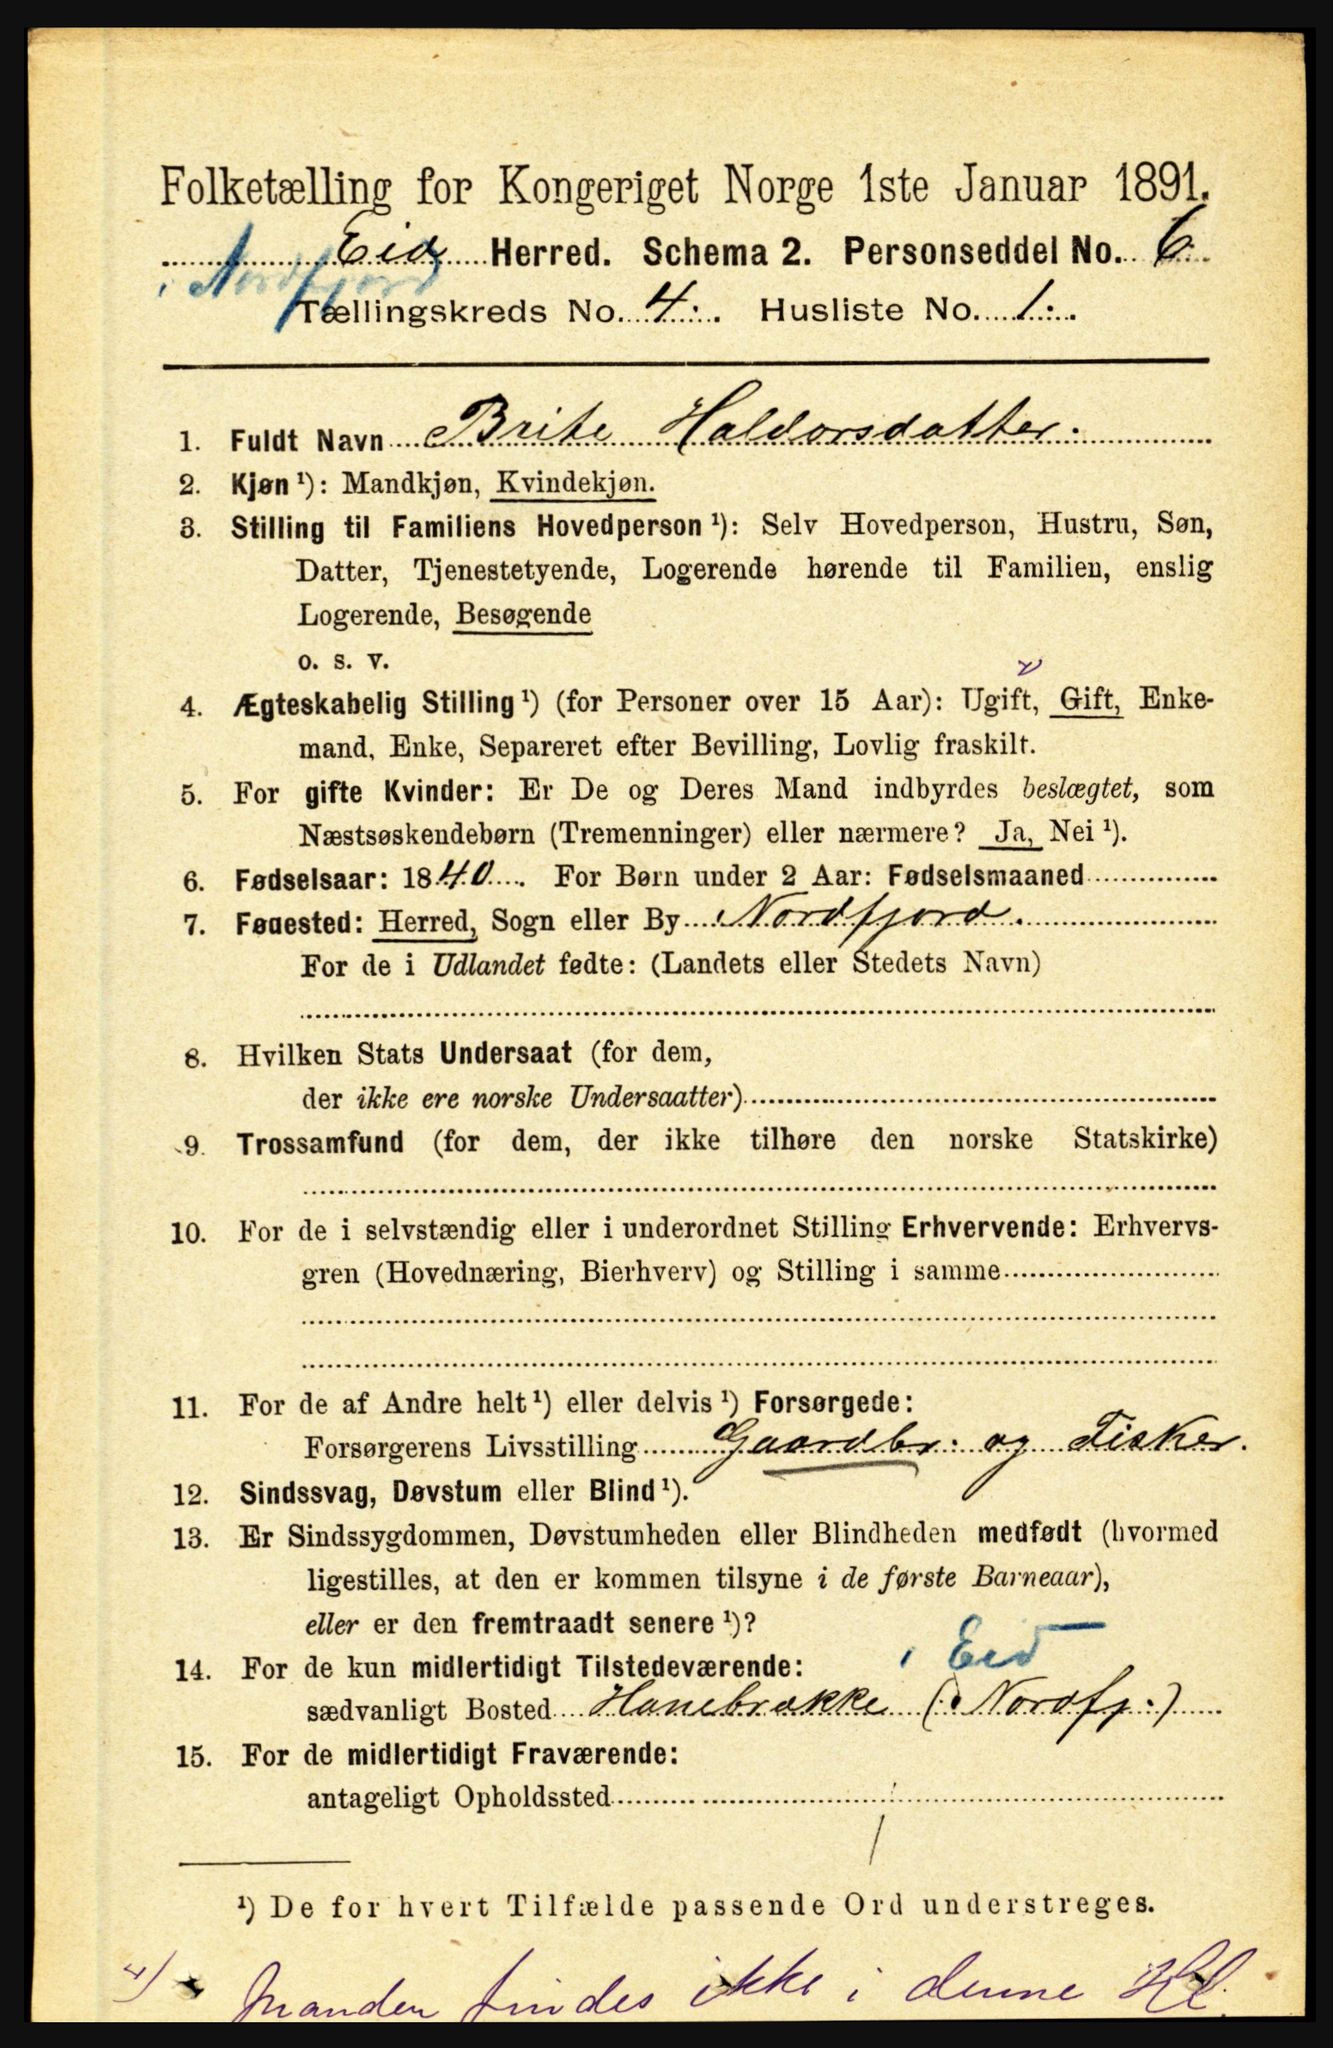 Folketælling for Kongeriget Norge 1ste Januar 1891.
Eid Herred. Schema 2. Personseddel No. 6
i Nordfjord
Tællingskreds No. 4. Husliste No. 1.
1. Fuldt Navn Brite Haldorsdatter.
2. Kjøn ¹): Mandkjøn, Kvindekjøn.
3. Stilling til Familiens Hovedperson ¹): Selv Hovedperson, Hustru, Søn,
Datter, Tjenestetyende, Logerende hørende til Familien, enslig
Logerende, Besøgende
o. s. v.
4. Ægteskabelig Stilling ¹) (for Personer over 15 Aar): Ugift, Gift, Enke-
mand, Enke, Separeret efter Bevilling, Lovlig fraskilt.
5. For gifte Kvinder: Er De og Deres Mand indbyrdes beslægtet, som
Næstsøskendebørn (Tremenninger) eller nærmere? Ja, Nei ¹).
6. Fødselsaar: 1840. For Børn under 2 Aar: Fødselsmaaned
7. Fødested: Herred, Sogn eller By Nordfjord.
For de i Udlandet fødte: (Landets eller Stedets Navn)
8. Hvilken Stats Undersaat (for dem,
der ikke ere norske Undersaatter)
9. Trossamfund (for dem, der ikke tilhøre den norske Statskirke)
10. For de i selvstændig eller i underordnet Stilling Erhvervende: Erhvervs-
gren (Hovednæring, Bierhverv) og Stilling i samme
11. For de af Andre helt ¹) eller delvis ¹) Forsørgede:
Forsørgerens Livsstilling Gaardbr. og Fisker.
12. Sindssvag, Døvstum eller Blind ¹).
13. Er Sindssygdommen, Døvstumheden eller Blindheden medfødt (hvormed
ligestilles, at den er kommen tilsyne i de første Barneaar),
eller er den fremtraadt senere ¹)?
i Eid
14. For de kun midlertidigt Tilstedeværende:
sædvanligt Bosted Hanebrække (Nordfj.)
15. For de midlertidigt Fraværende:
antageligt Opholdssted
¹) De for hvert Tilfælde passende Ord understreges.
4) Manden findes ikke i denne Hl.